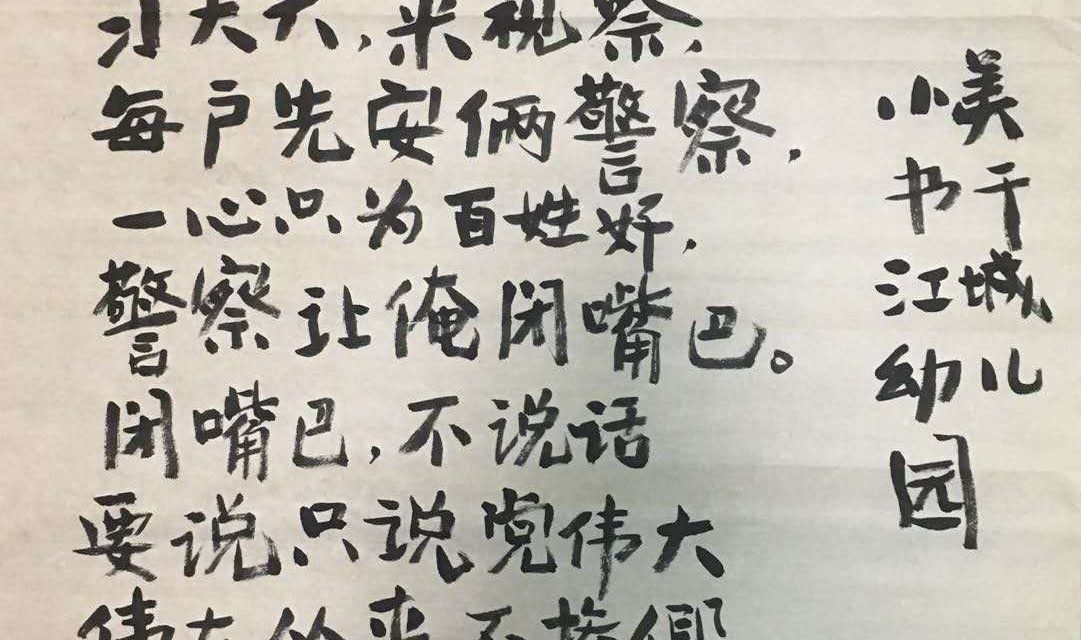 习大大，来视察，
每户先安俩警察，
一心只为百姓好，
警察让俺闭嘴巴。
闭嘴巴，不说话
要说只说党伟大
伟大 来不
小美
书于
江城
幼儿
园